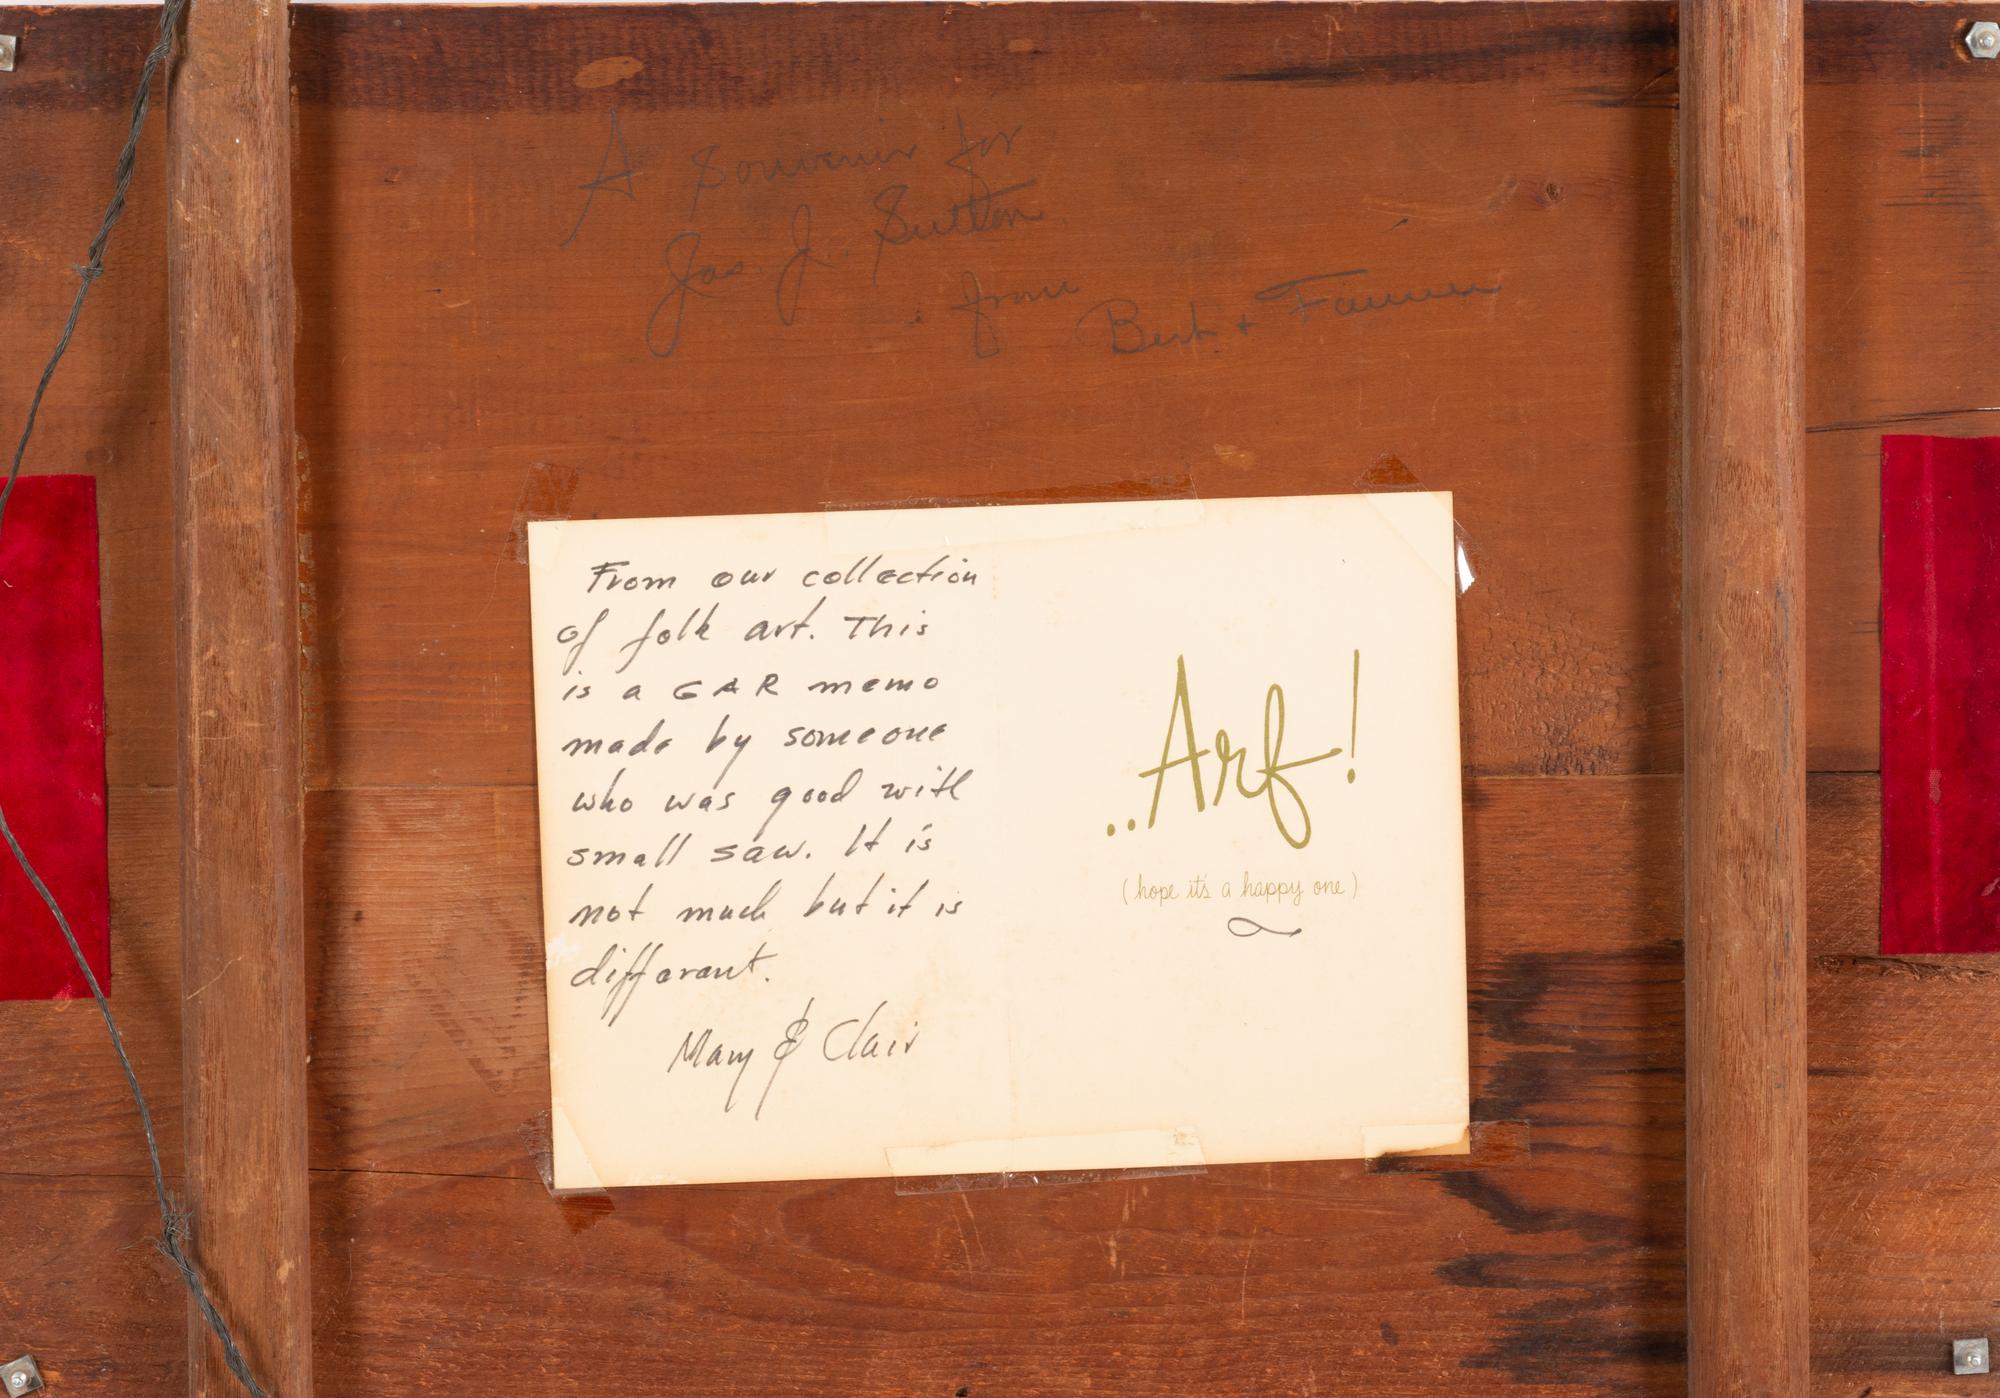 A Souvenir for
Jas. J. Sutton
from
Bert +
From our collection
of folk art. This
is a GAR memo
made by someone
who was good with
small saw. It is
not much but it is
different.
Mary & Clair
..Arf!
(hope it's a happy one)